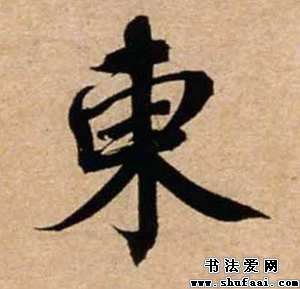 東
书法爱网
www.shufaai.com